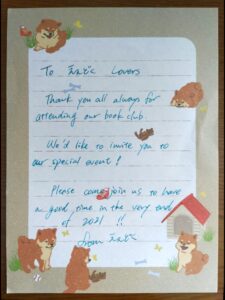 To Lovers
Thank you all always for
attending our book club.
We'd like to invite you to
our special event!
Please come join us to have
a good time in the very end
of 2021 !!
from